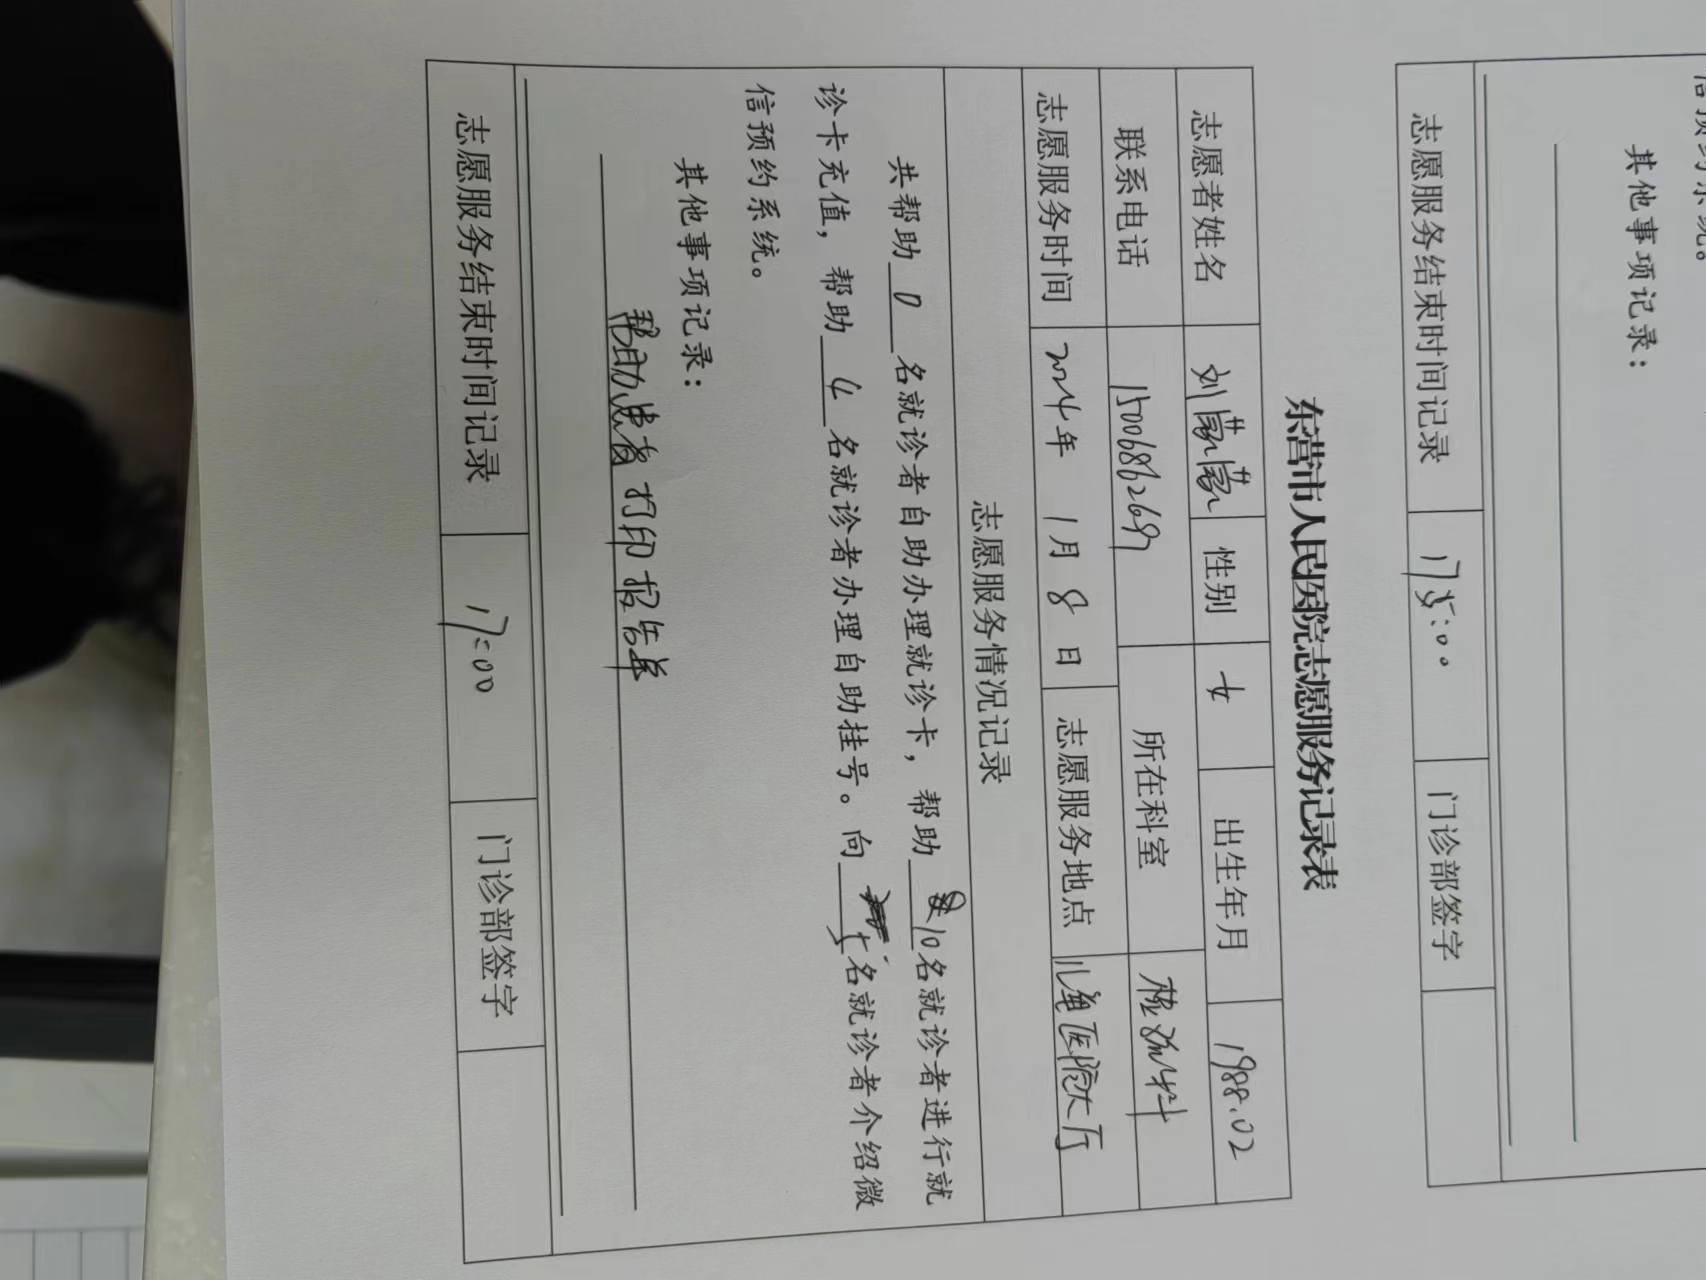 信预约系统。
其他事项记录：
志愿服务结束时间记录 17:00 门诊部签字
东营市人民医院志愿服务记录表
志愿者姓名 刘蒙蒙 性别 女 出生年月 1988.02
联系电话 15006862697 所在科室 检验科
志愿服务时间 2024年 1月 8 日 志愿服务地点 儿童医院大厅
志愿服务情况记录
共帮助 0 名就诊者自助办理就诊卡，帮助 10名就诊者进行就
诊卡充值，帮助 4 名就诊者办理自助挂号。向 名就诊者介绍微
信预约系统。
其他事项记录：
帮助患者打印报告单
志愿服务结束时间记录 17:00 门诊部签字